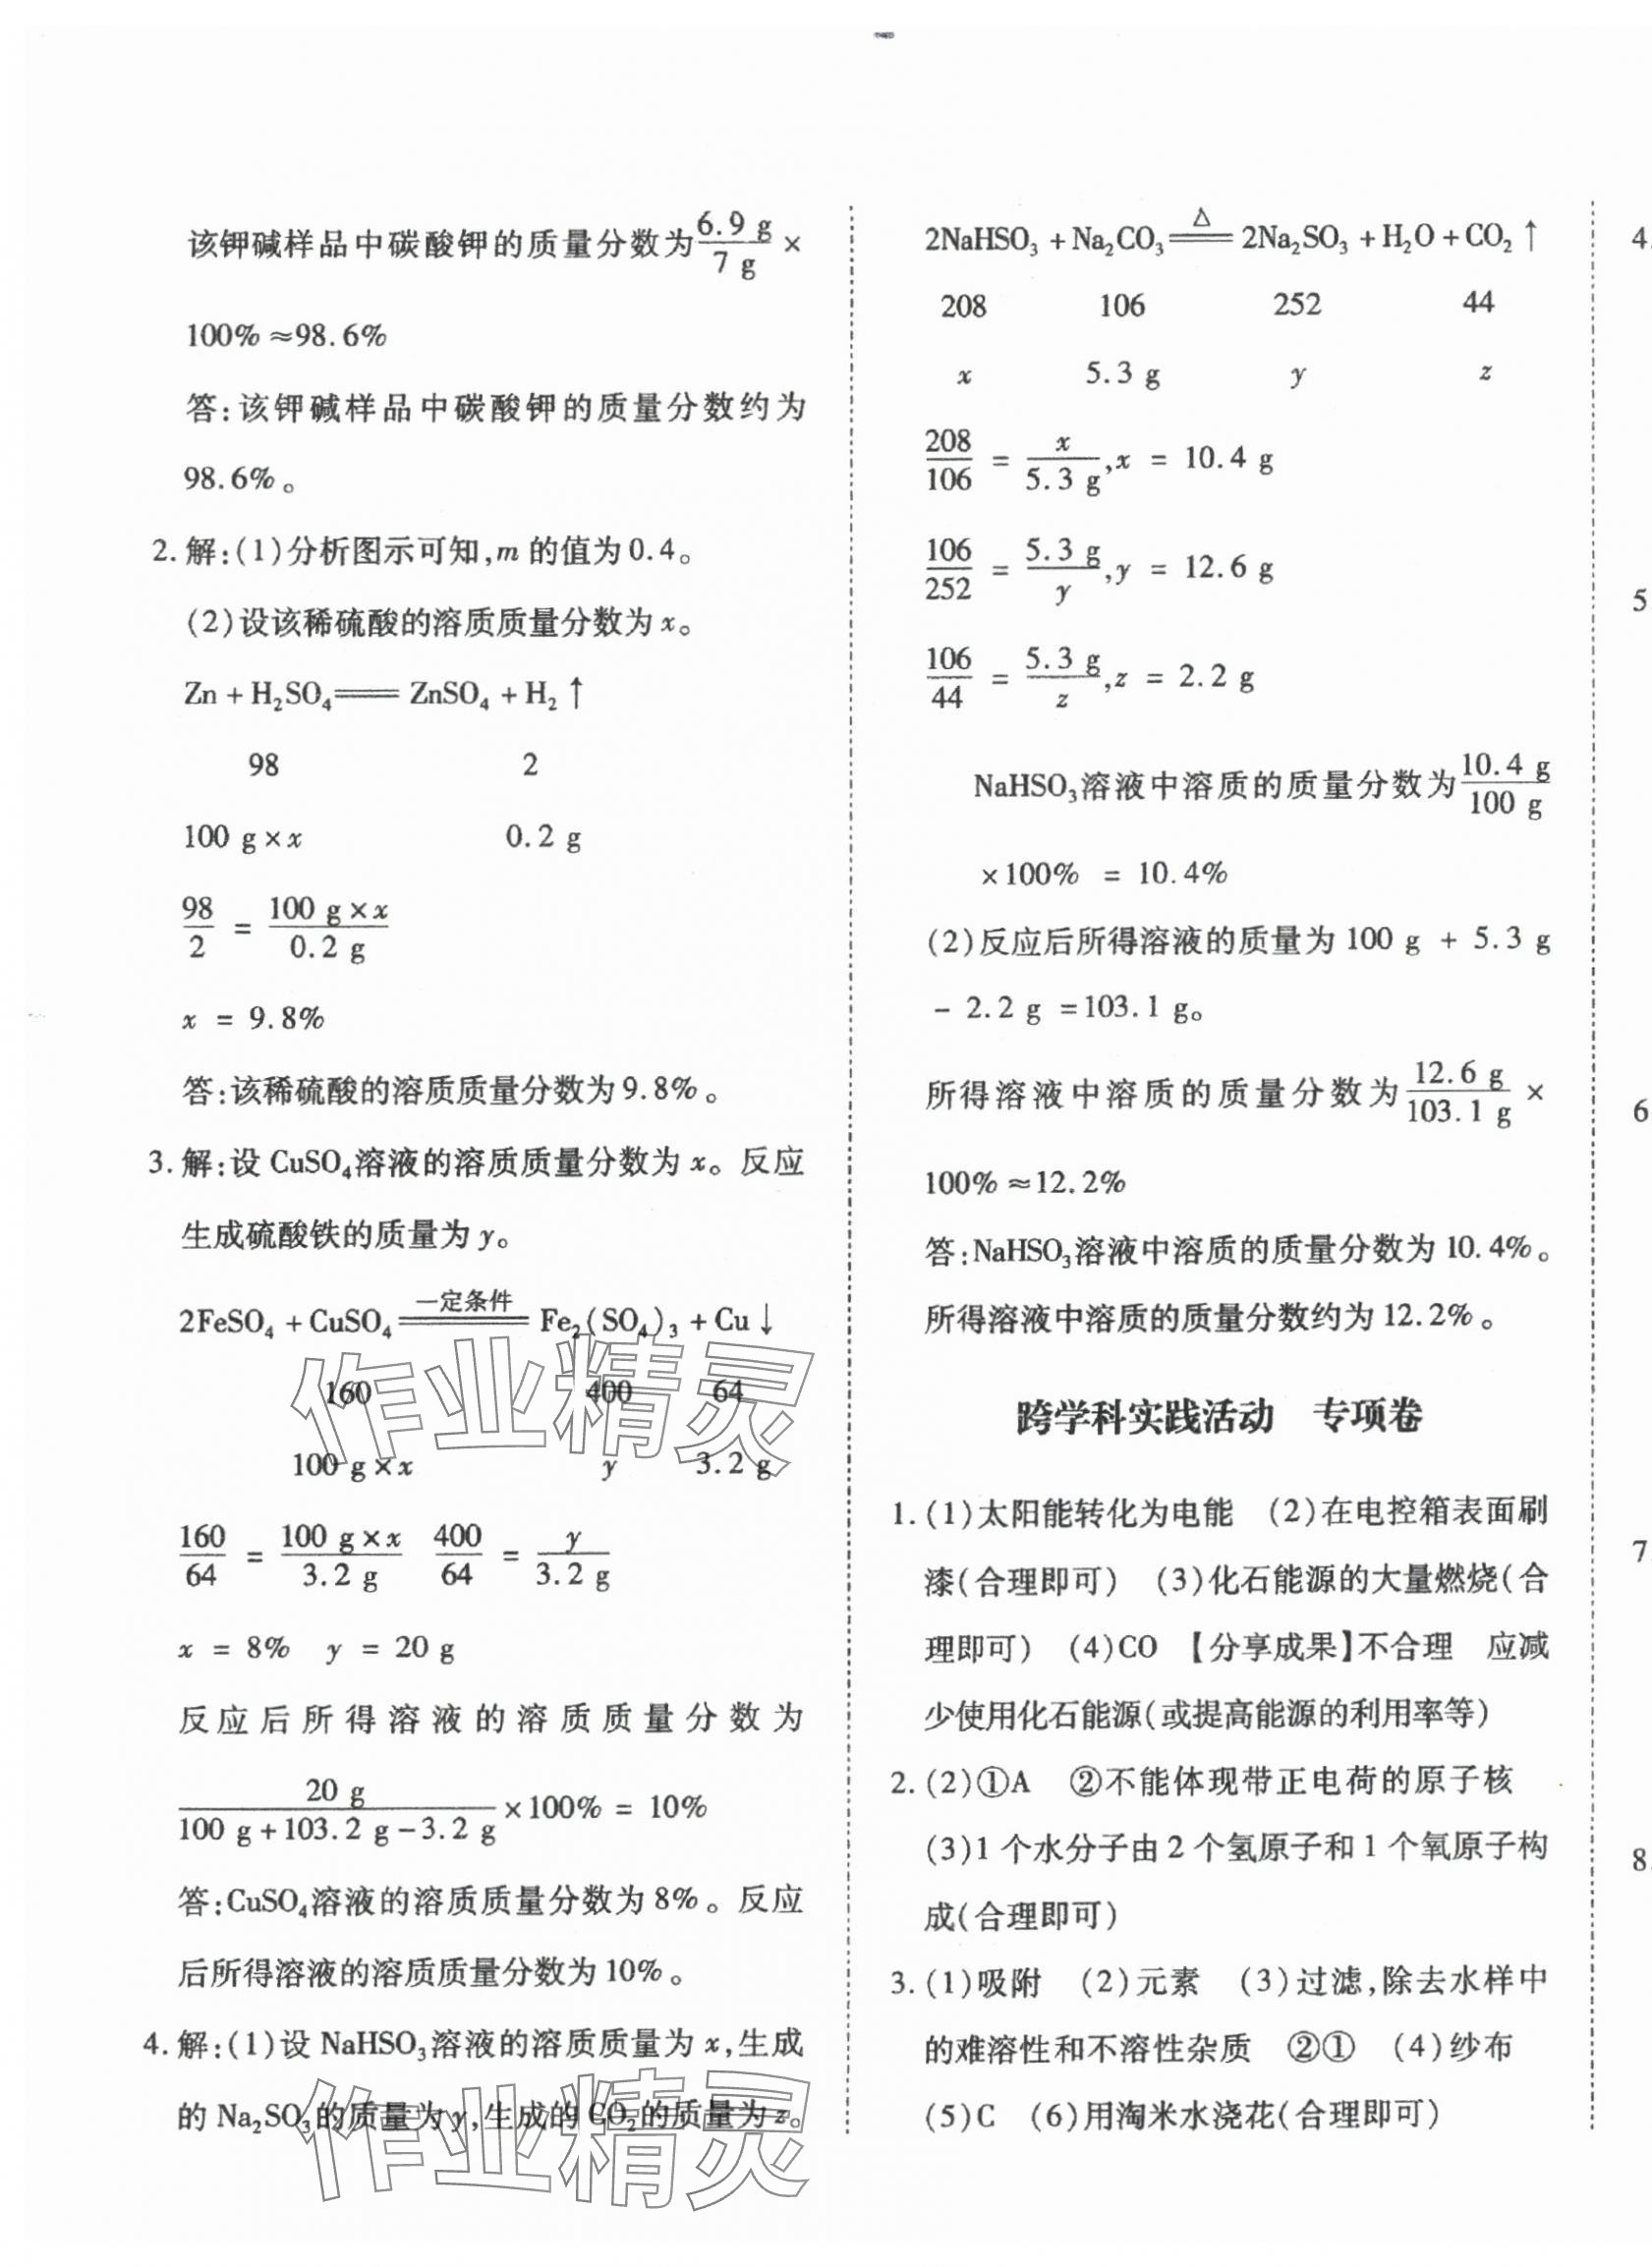 该钾碱样品中碳酸钾的质量分数为6.9 g/7 g×
100%≈98.6%
答:该钾碱样品中碳酸钾的质量分数约为
98.6%。
2.解:(1)分析图示可知,m的值为0.4。
(2)设该稀硫酸的溶质质量分数为x。
Zn+H₂SO₄══ZnSO₄+H₂↑
98 2
100 g×x 0.2 g
98/2 = 100 g×x/0.2 g
x = 9.8%
答:该稀硫酸的溶质质量分数为9.8%。
3.解:设CuSO₄溶液的溶质质量分数为x。反应
生成硫酸铁的质量为y。
2FeSO₄+CuSO₄══(一定条件)Fe₂(SO₄)₃+Cu↓
160 400 64
100 g×x y 3.2 g
160/64 = 100 g×x/3.2 g 400/64 = y/3.2 g
x = 8% y = 20 g
反应后所得溶液的溶质质量分数为
20 g/(100 g+103.2 g-3.2 g)×100% = 10%
答:CuSO₄溶液的溶质质量分数为8%。反应
后所得溶液的溶质质量分数为10%。
4.解:(1)设NaHSO₃溶液的溶质质量为x,生成
的Na₂SO₃的质量为y,生成的CO₂的质量为z。
作业精灵
作业精灵
2NaHSO₃+Na₂CO₃══(△)2Na₂SO₃+H₂O+CO₂↑
208 106 252 44
x 5.3 g y z
208/106 = x/5.3 g,x = 10.4 g
106/252 = 5.3 g/y,y = 12.6 g
106/44 = 5.3 g/z,z = 2.2 g
NaHSO₃溶液中溶质的质量分数为10.4 g/100 g
×100% = 10.4%
(2)反应后所得溶液的质量为100 g + 5.3 g
- 2.2 g =103.1 g。
所得溶液中溶质的质量分数为12.6 g/103.1 g×
100%≈12.2%
答:NaHSO₃溶液中溶质的质量分数为10.4%。
所得溶液中溶质的质量分数约为12.2%。
跨学科实践活动 专项卷
1.(1)太阳能转化为电能 (2)在电控箱表面刷
漆(合理即可) (3)化石能源的大量燃烧(合
理即可) (4)CO 【分享成果】不合理 应减
少使用化石能源(或提高能源的利用率等)
2.(2)①A ②不能体现带正电荷的原子核
(3)1个水分子由2个氢原子和1个氧原子构
成(合理即可)
3.(1)吸附 (2)元素 (3)过滤,除去水样中
的难溶性和不溶性杂质 ②① (4)纱布
(5)C (6)用淘米水浇花(合理即可)
4
5
6
7
8